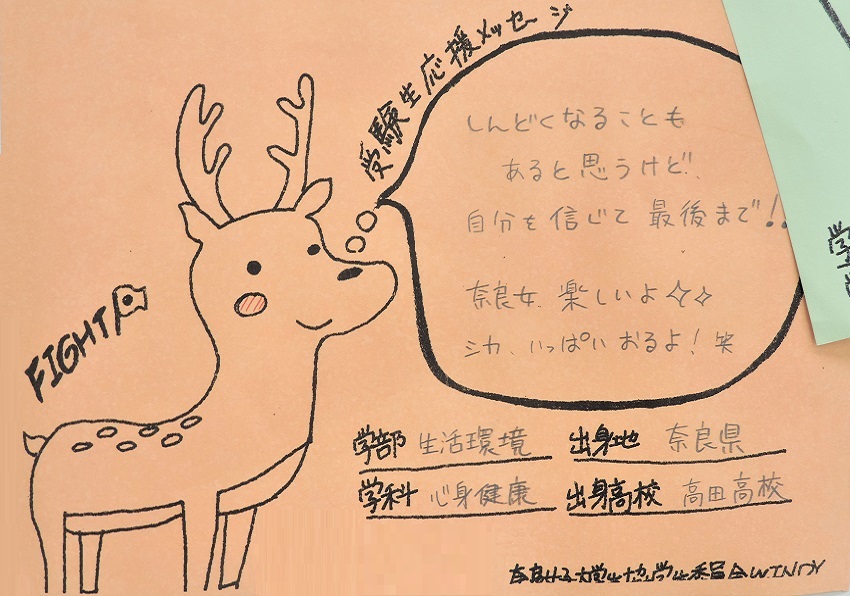 受験生応援メッセージ
しんどくなることも
あると思うけど、
自分を信じて最後まで!!
奈良女、楽しいよ✧✧
シカ、いっぱいおるよ!笑
FIGHT
学部 生活環境 出身地 奈良県
学科 心身健康 出身高校 高田高校
奈良女子大学生協学生委員会WINDY
学